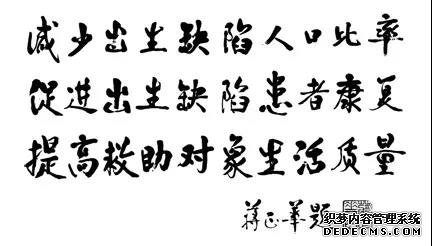 减少出生缺陷人口比率
促进出生缺陷患者康复
提高救助对象生活质量
蒋正华题
织梦内容管理系统
DEDECMS.COM